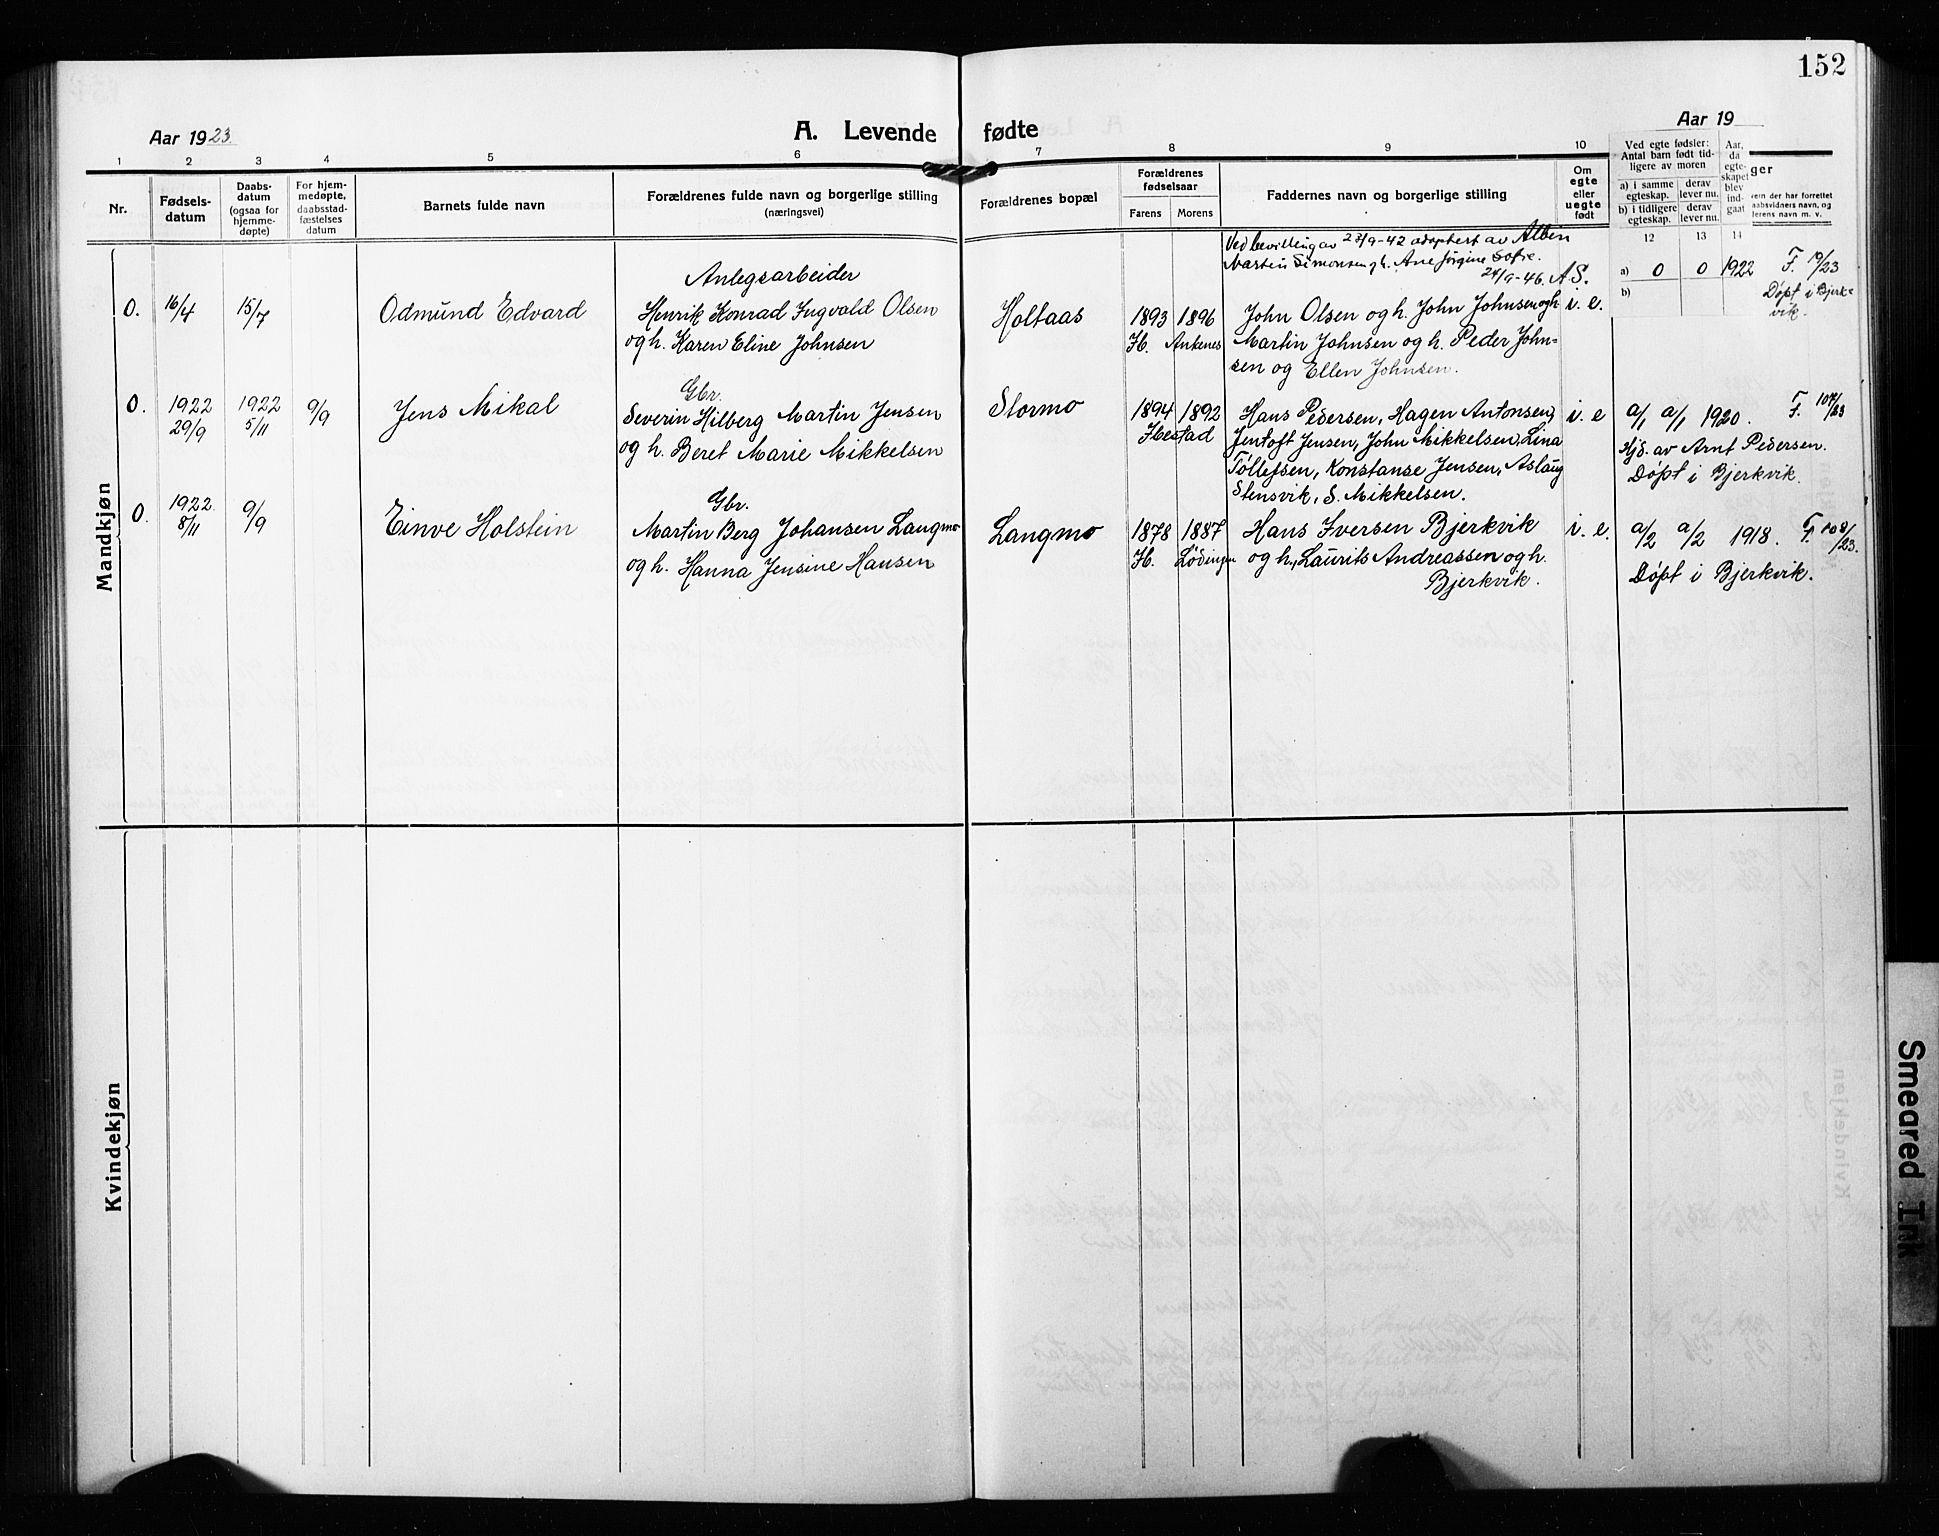 152
Aar 1923.
A. Levende fødte
Aar 19
1 2 3 4 5 6 7 8 9 10
Nr.
Fødsels-
datum
Daabs-
datum
(ogsaa for
hjemme-
døpte)
For hjem-
medøpte,
daabsstad-
fæstelses
datum
Barnets fulde navn
Forældrenes fulde navn og borgerlige stilling
(næringsvei)
Forældrenes bopæl
Forældrenes
fødselsaar
Farens
Morens
Faddernes navn og borgerlige stilling
Om
egte
eller
uegte
født
Ved egte fødsler:
Antal barn født tid-
ligere av moren
a) i samme
egteskap.
derav
lever nu.
b) i tidligere
egteskap.
derav
lever nu.
Aar,
da
egte-
skapet
blev
ind-
gaat
12 13 14
ger
ern der har forrettet
aabsvidners navn, og
lerens navn m. v.
Mandkjøn
Ved bevilling av 23/9-42 adoptert av Albin
Martin Simonsen g h. Ane Jørgine Sofie.
24/9-46. A.S.
0. 16/4 15/7 Odmund Edvard
Anlegsarbeider
Henrik Konrad Ingvald Olsen
og h. Karen Eline Johnsen
Holtaas
1893 1896
H. Ankenes
John Olsen og h. John Johnsen og h
Martin Johnsen og h. Peder John-
sen og Ellen Johnsen.
i. e.
a) 0 0 1922
b)
F. 19/23
Døpt i Bjerk-
vik.
0. 1922 29/9 1922 5/11 9/9 Jens Mikal
Gbr.
Severin Hilberg Martin Jensen
og h. Beret Marie Mikkelsen
Stormo
1894 1892
Ibestad
Hans Pedersen, Hagen Antonsen,
Jentoft Jensen, John Mikkelsen, Lina
Tollefsen, Konstanse Jensen, Aslaug
Stensvik, S. Mikkelsen.
i. e
a/1 a/1 1920. F. 107/23
Hjd. av Arnt Pedersen.
Døpt i Bjerkvik.
0. 1922. 8/11 9/9 Einve Holstein
Gbr.
Martin Berg Johansen Langmo
og h. Hanna Jensine Hansen
Langmo
1878 1887
H. Lødingen
Hans Iversen Bjerkvik
og h., Laurits Andreassen og h.
Bjerkvik.
i. e.
a/2 a/2 1918. F. 108/23.
Døpt i Bjerkvik.
Kvindekjøn
Smeared Ink